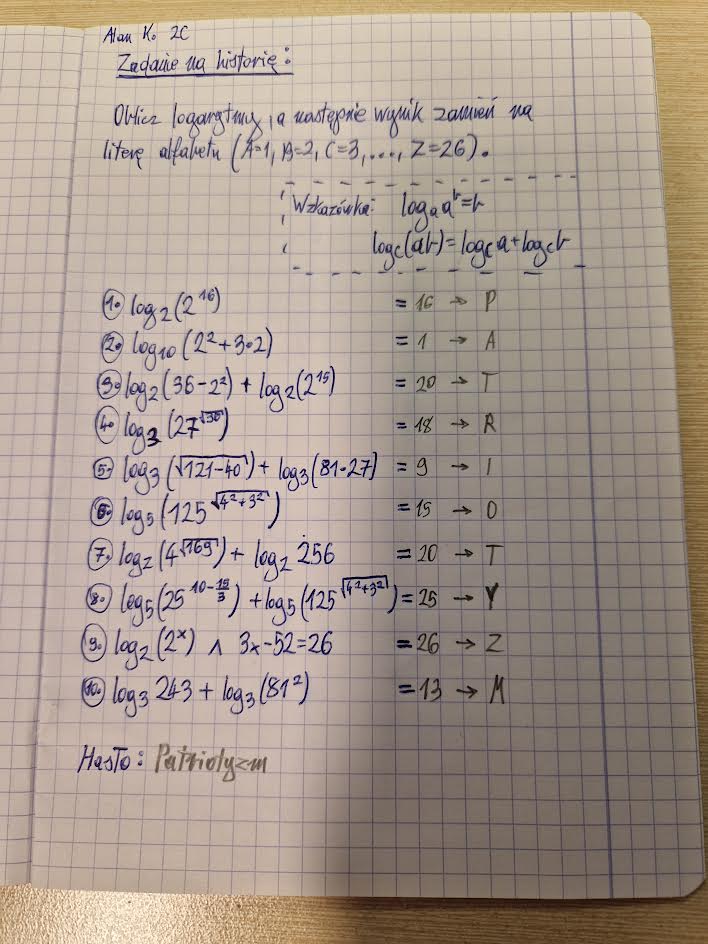 Alan K. 2C
Zadanie na historię:
Oblicz logarytmy, a następnie wynik zamień na
literę alfabetu (A=1, B=2, C=3, ..., Z=26).
Wzkazówka: logₐaᵇ=b
log_c(ab)=log_c a+log_c b
1. log₂(2¹⁶) = 16 → P
2. log₁₀(2²+3·2) = 1 → A
3. log₂(36-2²) + log₂(2¹⁵) = 20 → T
4. log₃(27^√36) = 18 → R
5. log₃(√121-40) + log₃(81·27] = 9 → I
6. log₅(125^√4²+3²) = 15 → O
7. log₂(4^√169) + log₂ 256 = 20 → T
8. log₅(25^10-15/3) + log₅(125^√4²+3²) = 25 → Y
9. log₂(2ˣ) ∧ 3x-52=26 = 26 → Z
10. log₃ 243 + log₃(81²) = 13 → M
Hasło: Patriotyzm